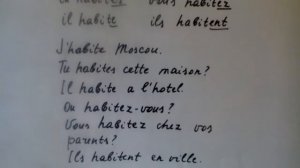 habitez
il habite ils habitent
J'habite Moscou.
Tu habites cette maison?
Il habite a l'hotel
Ou habitez-vous?
Vous habitez chez vos
parents?
Ils habitent en ville.